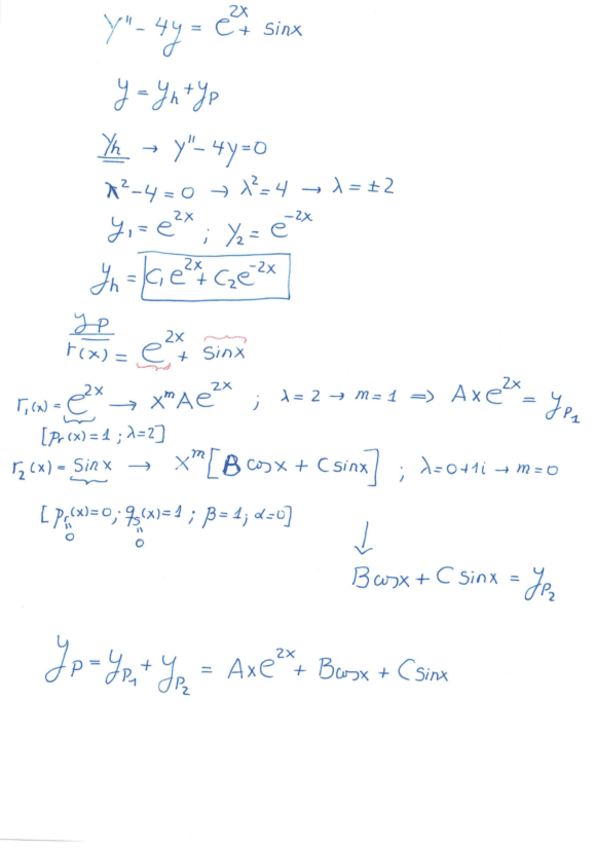 y'' - 4y = e^{2x} + sinx
y = y_h + y_p
y_h → y'' - 4y = 0
λ² - 4 = 0 → λ² = 4 → λ = ±2
y_1 = e^{2x} ; y_2 = e^{-2x}
y_h = C_1 e^{2x} + C_2 e^{-2x}
y_p
r(x) = e^{2x} + sinx
r_1(x) = e^{2x} → x^m A e^{2x} ; λ = 2 → m = 1 ⇒ Axe^{2x} = y_{p_1}
[p_r(x) = 1 ; λ = 2]
r_2(x) = sinx → x^m [B cosx + C sinx] ; λ = 0 + 1i → m = 0
[p_r(x) = 0 ; q_s(x) = 1 ; β = 1 ; α = 0]
" "
0 0
↓
B cosx + C sinx = y_{p_2}
y_p = y_{p_1} + y_{p_2} = Axe^{2x} + B cosx + C sinx